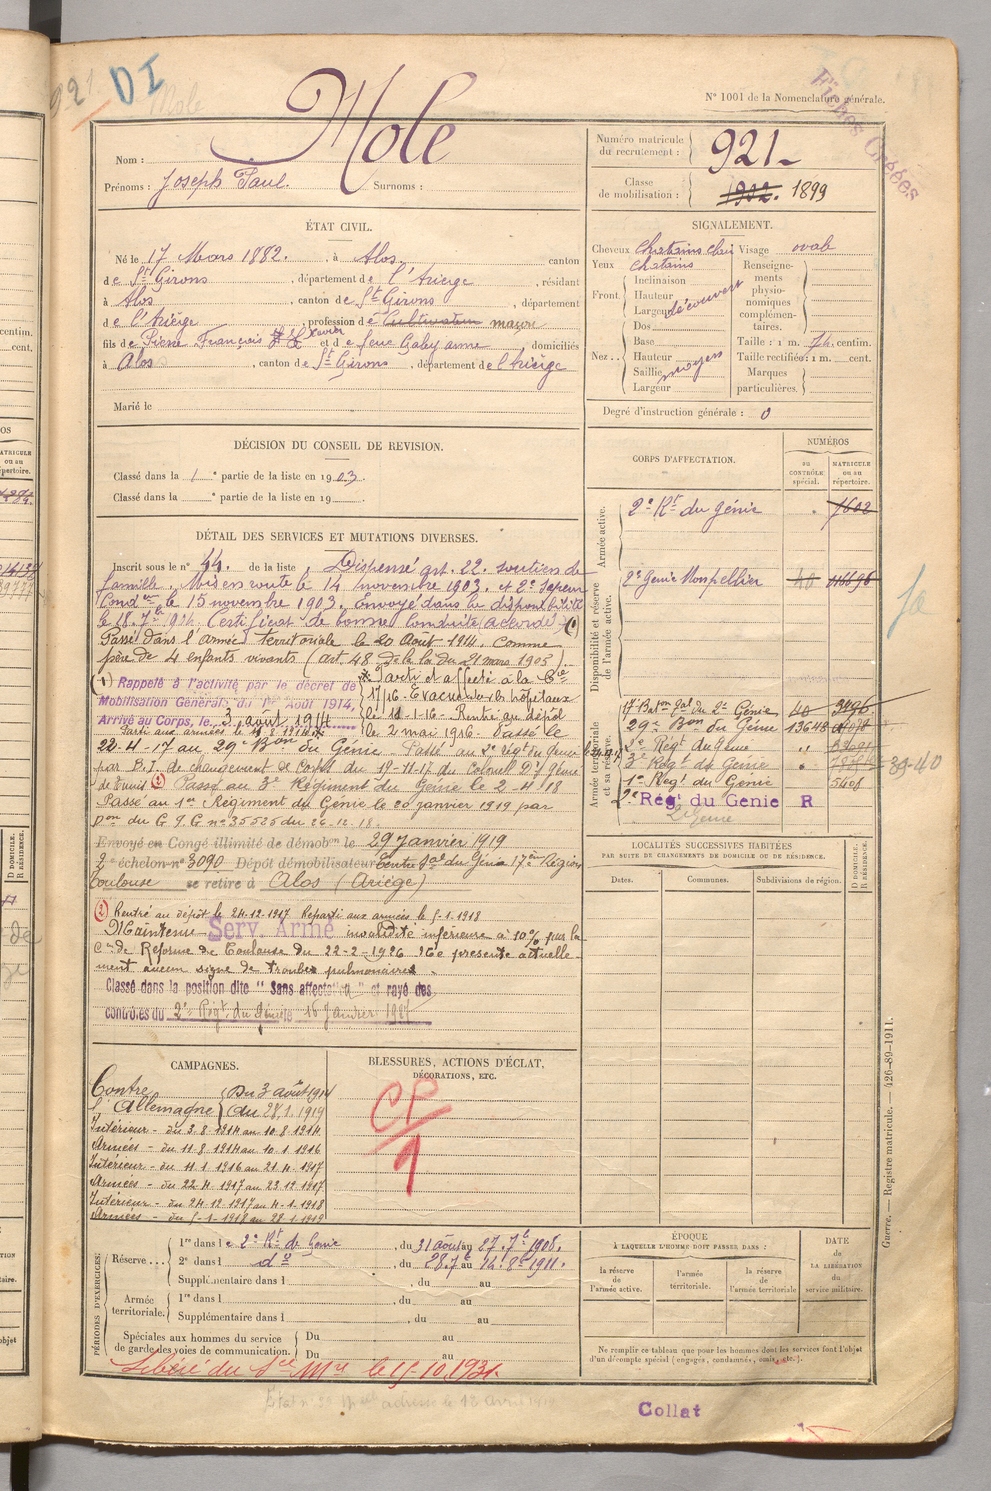 921
DI
Mole
N° 1001 de la Nomenclature générale.
Fiches Créées
Nom : Mole
Prénoms : Joseph Paul. Surnoms :
Numéro matricule du recrutement : 921
Classe de mobilisation : 1902. 1899
ÉTAT CIVIL.
Né le 17 Mars 1882. , à Alos. canton
de St Girons , département de l'Ariège , résidant
à Alos , canton de St Girons , département
de l'Ariège , profession de Cultivateur maçon
fils de Pierre François Xavier et de feue Galey anne domiciliés
à Alos , canton de St Girons , département de l'Ariège
Marié le
SIGNALEMENT.
Cheveux chatains clair Visage ovale
Yeux chatains
Front. Inclinaison Hauteur Largeur découvert
Nez. Dos Base Hauteur Saillie Largeur moyen
Renseignements physionomiques complémentaires.
Taille : 1 m. 74 centim.
Taille rectifiée : 1 m. cent.
Marques particulières.
Degré d'instruction générale : 0
DÉCISION DU CONSEIL DE REVISION.
Classé dans la 1 e partie de la liste en 1903.
Classé dans la e partie de la liste en 19
CORPS D'AFFECTATION.
NUMÉROS
au CONTRÔLE spécial.
MATRICULE ou au répertoire.
Armée active.
2e Rt du génie 7602
Disponibilité et réserve de l'armée active.
2e Génie Montpellier 40
Armée territoriale et sa réserve.
17e Baton Gal du 2e Génie 40 3496
29e Bon du Génie 13648
2e Régt du Génie
3e Régt de Génie 39-40
1er Regt du Génie 5408
2e Régt du Genie R
2e Genie
DÉTAIL DES SERVICES ET MUTATIONS DIVERSES.
Inscrit sous le n° 44. de la liste Dispensé art. 22. soutien de
famille. Mis en route le 14 novembre 1903. et 2e Sapeur
Condeur le 15 novembre 1903. Envoyé dans la disponibilité
le 18. 7bre 1904. Certificat de bonne conduite accordé (1)
Passé dans l'armée territoriale le 20 Août 1914. Comme
père de 4 enfants vivants (art 48 de la loi du 21 mars 1905).
(1) Rappelé à l'activité par le décret de
Mobilisation Générale du 1er Août 1914,
Arrivé au Corps, le 3 août 1914
Parti aux armées le 11 8 1914
Parti et affecté à la Cie
17/16. Evacué sur les hôpitaux
le 11-1-16. Rentré au dépôt
le 2 mai 1916. Passé le
22-4-17 au 29e Bon du Génie. Passé au 2e Régt du Génie
par B.I. de changement de Corps du 19-11-17 du Colonel Dr Génie
de Tunis (2) Passé au 3e Régiment du Génie le 2-4-18
Passé au 1er Régiment du Génie le 20 janvier 1919 par
Don du G Q G n° 35526 du 26-12-18.
Envoyé en Congé illimité de démobon le 29 Janvier 1919
2e échelon n° 3090 Dépôt démobilisateur Centre Mal du Génie 17ème Région
Toulouse se retire à Alos (Ariège)
(2) Rentré au dépôt le 24.12.1917 Reparti aux armées le 5-1-1918
Maintenu Serv. Armé invalidité inférieure à 10% par la
Con de Réforme de Toulouse du 22-2-1926 Ne présente actuelle-
ment aucun signe de troubles pulmonaires.
Classé dans la position dite " Sans affectation " et rayé des
contrôles du 2e Régt du Génie le 16 Janvier 1927
LOCALITÉS SUCCESSIVES HABITÉES
PAR SUITE DE CHANGEMENTS DE DOMICILE OU DE RÉSIDENCE.
Dates. Communes. Subdivisions de région.
D DOMICILE. R RÉSIDENCE.
CAMPAGNES.
Contre l'Allemagne Du 3 août 1914 au 28.1.1919
Intérieur - du 3.8.1914 au 10.8.1914
Armées - du 11.8.1914 au 10.1.1916
Intérieur - du 11.1.1916 au 21.4.1917
Armées - du 22.4.1917 au 23.12.1917
Intérieur - du 24.12.1917 au 4.1.1918
Armées - du 5.1.1918 au 28.1.1919
BLESSURES, ACTIONS D'ÉCLAT,
DÉCORATIONS, ETC.
CP/1
PÉRIODES D'EXERCICES.
Réserve... 1re dans le 2e Rt de Génie , du 31 août au 27. 7bre 1908.
2e dans l do , du 28.7 au 14. 8bre 1911.
Supplémentaire dans l , du au
Armée territoriale. 1re dans l , du au
Supplémentaire dans l , du au
Spéciales aux hommes du service de garde des voies de communication. Du au
Du au
Libéré du Sce Mre le 15-10.1931.
ÉPOQUE
À LAQUELLE L'HOMME DOIT PASSER DANS :
la réserve de l'armée active.
l'armée territoriale.
la réserve de l'armée territoriale
DATE de LA LIBÉRATION du service militaire.
Ne remplir ce tableau que pour les hommes dont les services font l'objet
d'un décompte spécial (engagés, condamnés, omis, etc.).
Guerre. — Registre matricule. — 426-89-1911.
Collat